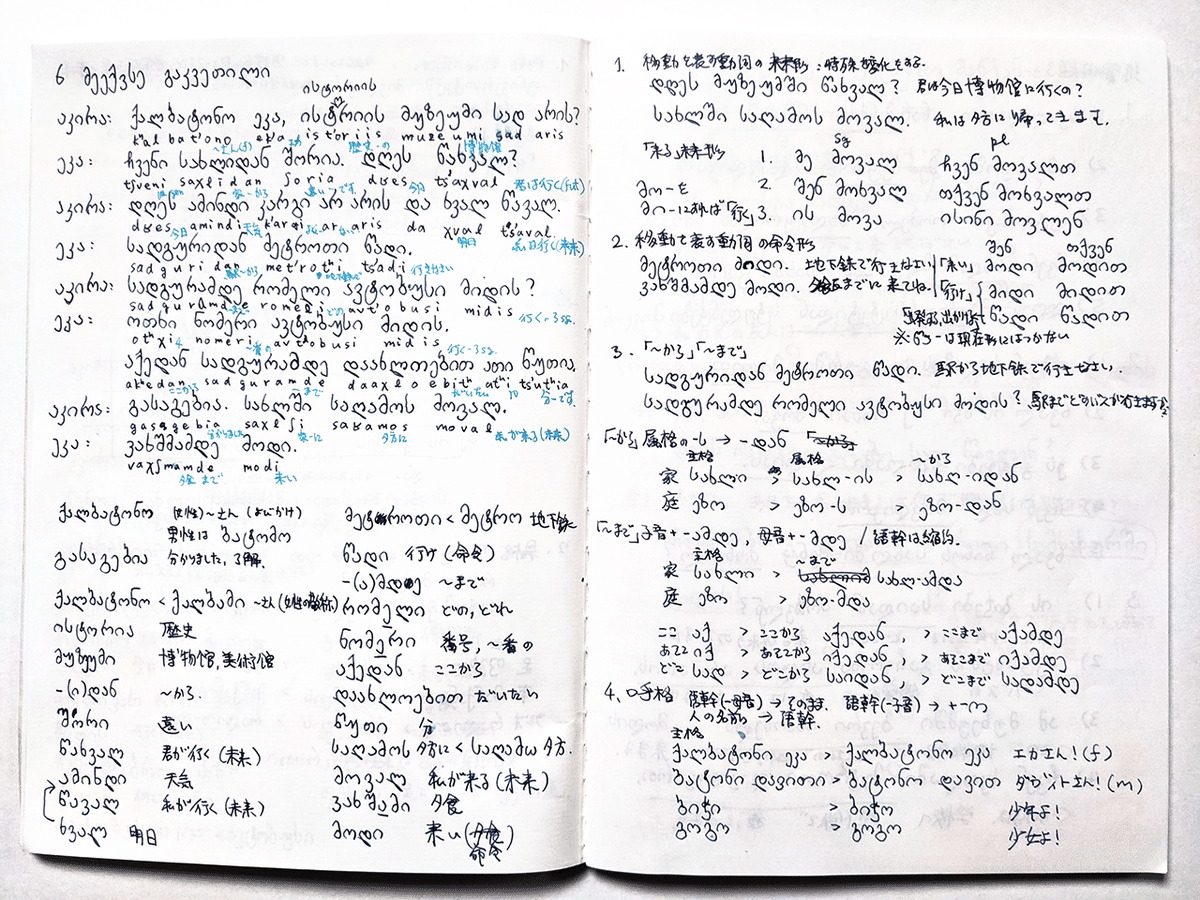 6 მეექვსე გაკვეთილი
ისტორიის
აკირა: ქალბატონო ეკა, ისტრიის მუზეუმი სად არის?
kʰal bat'ono ek'a istoriis muzeumi sad aris
~さん(f) 歴史-の 博物館
ეკა: ჩვენი სახლიდან შორია. დღეს წახვალ?
tʃveni saxlidan ʃoria dʁes ts'axval
家-から 遠い-です 今日 君は行く(fut)
აკირა: დღეს ამინდი კარგი არ არის და ხვალ წავალ.
dʁes amindi k'argi ar aris da xval ts'aval.
今日 天気 明日 私は行く(未来)
ეკა: სადგურიდან მეტროთი წადი.
sadguridan met'rotʰi ts'adi
駅-から 地下鉄で 行きなさい
აკირა: სადგურამდე რომელი ავტობუსი მიდის?
sadguramde romeli avt'obusi midis
まで どの 行く-3sg.
ეკა: ოთხი ნომერი ავტობუსი მიდის.
otʰxi nomeri avt'obusi midis
4 ~番の 行く-3sg.
აქედან სადგურამდე დაახლოებით ათი წუთია.
akʰedan sadguramde daaxloebitʰ atʰi ts'utʰia
ここから まで だいたい 10 分-です.
აკირა: გასაგებია. სახლში საღამოს მოვალ.
gasagebia saxlʃi saʁamos moval
分かりました 家-に 夕方に 私が来る(未来)
ეკა: ვახშმამდე მოდი.
vaxʃmamde modi
夕食まで 来い
ქალბატონო (女性)~さん (よびかけ)
男性は ბატონო
გასაგებია 分かりました, 了解.
ქალბატონო < ქალბატონი ~さん (女性の敬称)
ისტორია 歴史
მუზეუმი 博物館, 美術館
-(ი)დან ~から.
შორი 遠い
წახვალ 君が行く (未来)
ამინდი 天気
წავალ 私が行く (未来)
ხვალ 明日
მეტროთი < მეტრო 地下鉄
წადი 行け (命令)
-(ა)მდე ~まで
რომელი どの, どれ
ნომერი 番号, ~番の
აქედან ここから
დაახლოებით だいたい
წუთი 分
საღამოს 夕方に < საღამო 夕方.
მოვალ 私が来る (未来)
ვახშამი 夕食
მოდი 来い (命令)
1. 移動を表す動詞の未来形 : 特殊変化をする.
დღეს მუზეუმში წახვალ? 君は今日博物館に行くの?
სახლში საღამოს მოვალ. 私は夕方に帰ってきます.
「来る」未来形 sg pl
1. მე მოვალ ჩვენ მოვალთ
მო-を 2. შენ მოხვალ თქვენ მოხვალთ
მი-にすれば「行く」3. ის მოვა ისინი მოვლენ
2. 移動を表す動詞の命令形 შენ თქვენ
მეტროთი მოდი. 地下鉄で行きなさい 「来い」 მოდი მოდით
ვახშმამდე მოდი. 夕食までに来てね. 「行け」 მიდი მიდით
წადი წადით
※ წა-は現在形にはつかない
3. 「~から」「~まで」
სადგურიდან მეტროთი წადი. 駅から地下鉄で行きなさい.
სადგურამდე რომელი ავტობუსი მიდის? 駅までどのバスが行きますか
「~から」属格の-ს → -დან
主格 属格 ~から
家 სახლი > სახლ-ის > სახლ-იდან
庭 ეზო > ეზო-ს > ეზო-დან
「~まで」子音+-ამდე, 母音+-მდე / 語幹は縮約.
主格 ~まで
家 სახლი > სახლ-ამდე
庭 ეზო > ეზო-მდე
ここ აქ > ここから აქედან, > ここまで აქამდე
あそこ იქ > あそこから იქედან, > あそこまで იქამდე
どこ სად > どこから საიდან, > どこまで სადამდე
4. 呼格 語幹(-母音) → そのまま. 語幹(-子音) → +-ო
人の名前 → 語幹.
主格
ქალბატონი ეკა > ქალბატონო ეკა エカさん! (f)
ბატონი დავითი > ბატონო დავით ダヴィトさん! (m)
ბიჭი > ბიჭო 少年よ!
გოგო > გოგო 少女よ!